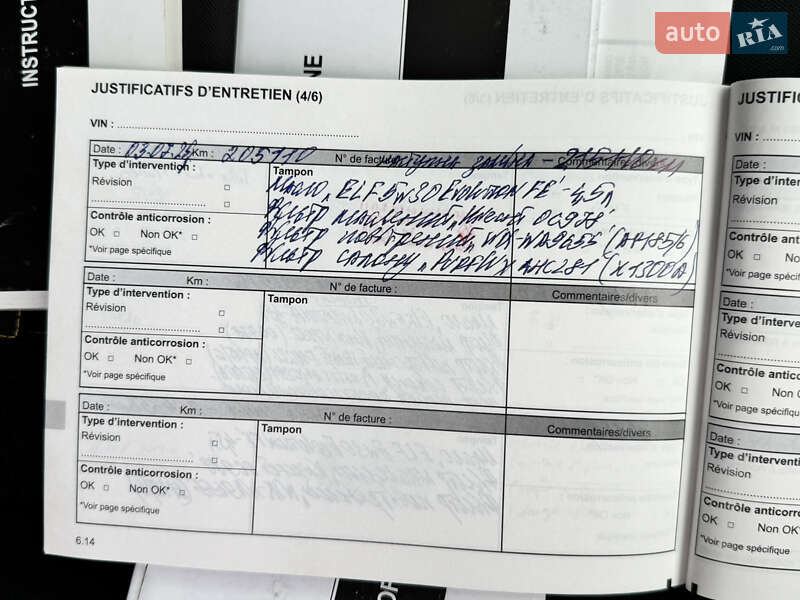 INSTRUCT
auto RIA
.com
NE
JUSTIFICATIFS D'ENTRETIEN (4/6)
VIN :
Date : 03.07. Km : 205110 N° de facture наступна заміна - 215110 км Commentaires/divers
Type d'intervention :
Révision
Contrôle anticorrosion :
OK Non OK*
*Voir page spécifique
Tampon
Масло „ELF 5w30 Evolution FE - 4,5л
Фільтр масляний „Knecht OC978"
Фільтр повітряний „WIX-WA9655 (AP185/6)
Фільтр салону „Purflux AHC281 (X1300A)
Date : Km : N° de facture :
Type d'intervention :
Révision
Contrôle anticorrosion :
OK Non OK*
*Voir page spécifique
Tampon
Commentaires/divers
Date : Km : N° de facture :
Type d'intervention :
Révision
Contrôle anticorrosion :
OK Non OK*
*Voir page spécifique
Tampon
Commentaires/divers
6.14
JUSTIFICA
VIN :
Date :
Type d'interven
Révision
Contrôle anticorr
OK Non
*Voir page spécifique
Date :
Type d'interven
Révision
Contrôle anticorr
OK Non O
*Voir page spécifique
Date :
Type d'interventi
Révision
Contrôle anticorro
OK Non OK*
*Voir page spécifique